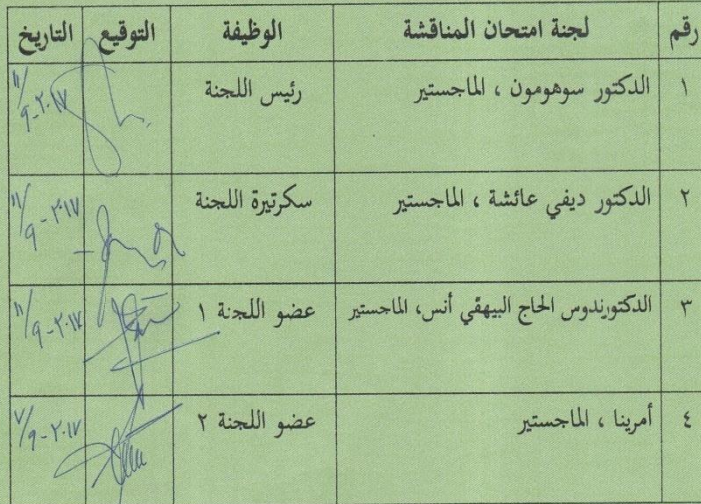 رقم لجنة امتحان المناقشة الوظيفة التوقيع التاريخ
١ الدكتور سوهومون ، الماجستير رئيس اللجنة ١١/٩-٢٠١٧
٢ الدكتور ديفي عائشة ، الماجستير سكرتيرة اللجنة ١١/٩-٢٠١٧
٣ الدكتورندوس الحاج البيهقي أنس، الماجستير عضو اللجنة ١ ١١/٩-٢٠١٧
٤ أمرينا ، الماجستير عضو اللجنة ٢ ٧/٩-٢٠١٧